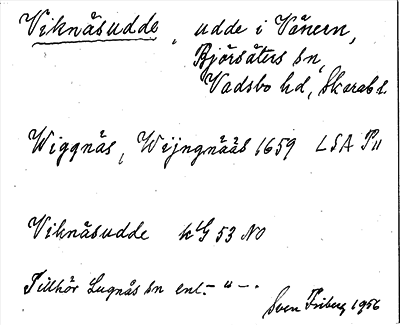 Viknäsudde, udde i Vänern,
Björsäters sn,
Vadsbo hd, Skarab l.
Wiggnäs, Wijngnääs 1659 LSA P 11
Viknäsudde kbl G 53 NO
Tillhör Lugnås sn enl. – " – .
Sven Friberg 1956